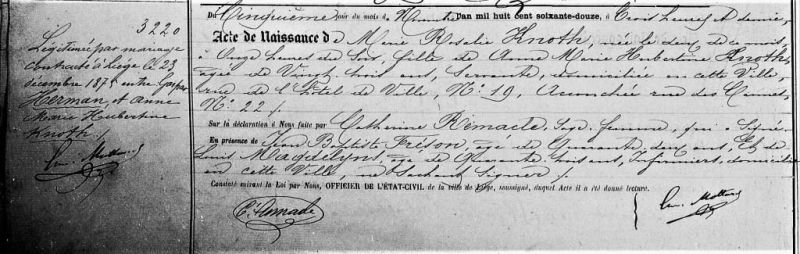 3220
Légitimée par mariage
contracté à Liège le 23
décembre 1875 entre Gaspar
Herman, et Anne
Marie Hubertine
Knoth.
Du Cinquième jour du mois d L'an mil huit cent soixante-douze, à Trois heures et demie,
Acte de Naissance d e Marie Rosalie Knoth, née le deux de ce mois,
à Onze heures du Soir, fille de Anne Marie Hubertine Knoth,
agée de Vingt trois ans, Servante, domiciliée en cette Ville,
rue de l'Hôtel de Ville, N°. 19, Accouchée rue des
N°. 22 /.
Sur la déclaration à Nous faite par Catherine Remacle, Sage femme, qui a Signé,
En présence de Jean Baptiste Frison, agé de Quarante deux ans, Et de
Louis Magdelyns, agé de Quarante trois ans, Infirmiers, domiciliés
en cette Ville, ne Sachant Signer /.
Constaté suivant la Loi par Nous, OFFICIER DE L'ÉTAT-CIVIL de la ville de Liége, soussigné, duquel Acte il a été donné lecture.